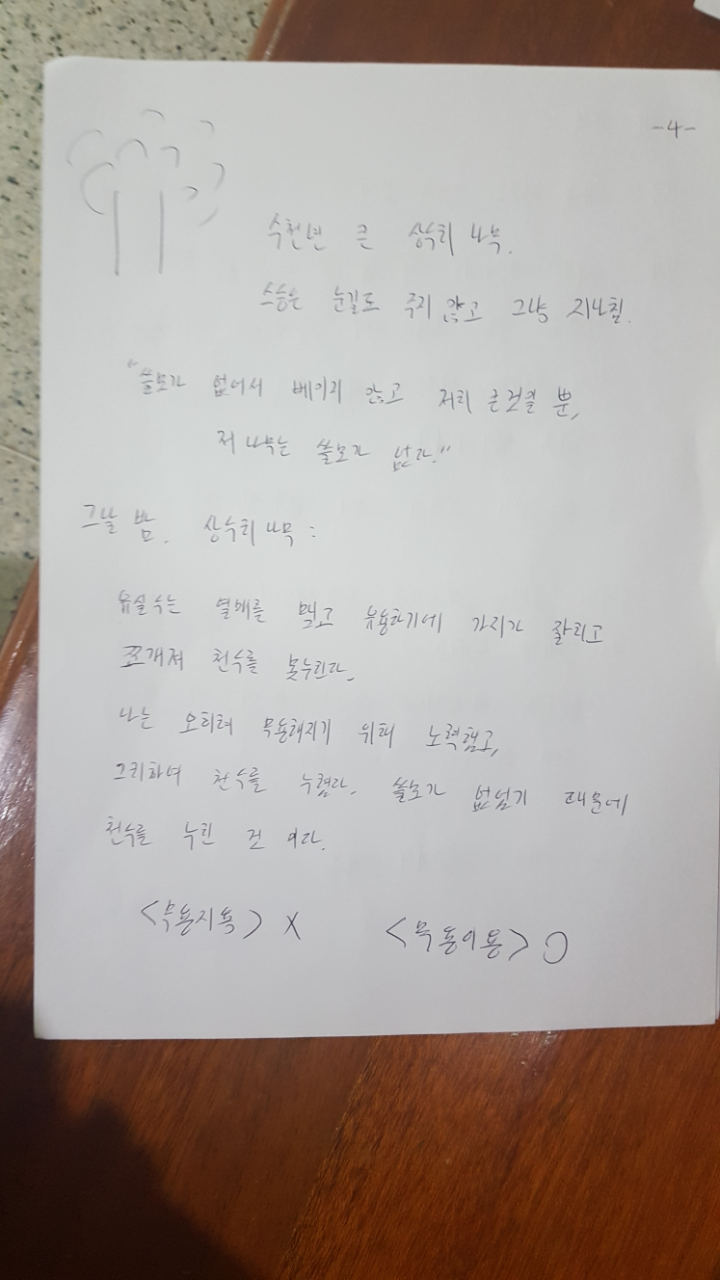 -4-
수천년 큰 상수리 나무.
스승은 눈길도 주지 않고 그냥 지나침.
"쓸모가 없어서 베이지 않고 저리 큰것일 뿐,
저 나무는 쓸모가 없다."
그날 밤. 상수리나무 :
유실수는 열매를 맺고 유용하기에 가지가 잘리고
쪼개져 천수를 못누린다.
나는 오히려 무용해지기 위해 노력했고,
그리하여 천수를 누렸다. 쓸모가 없었기 때문에
천수를 누린 것 이다.
<무용지용> X <무용이용> O